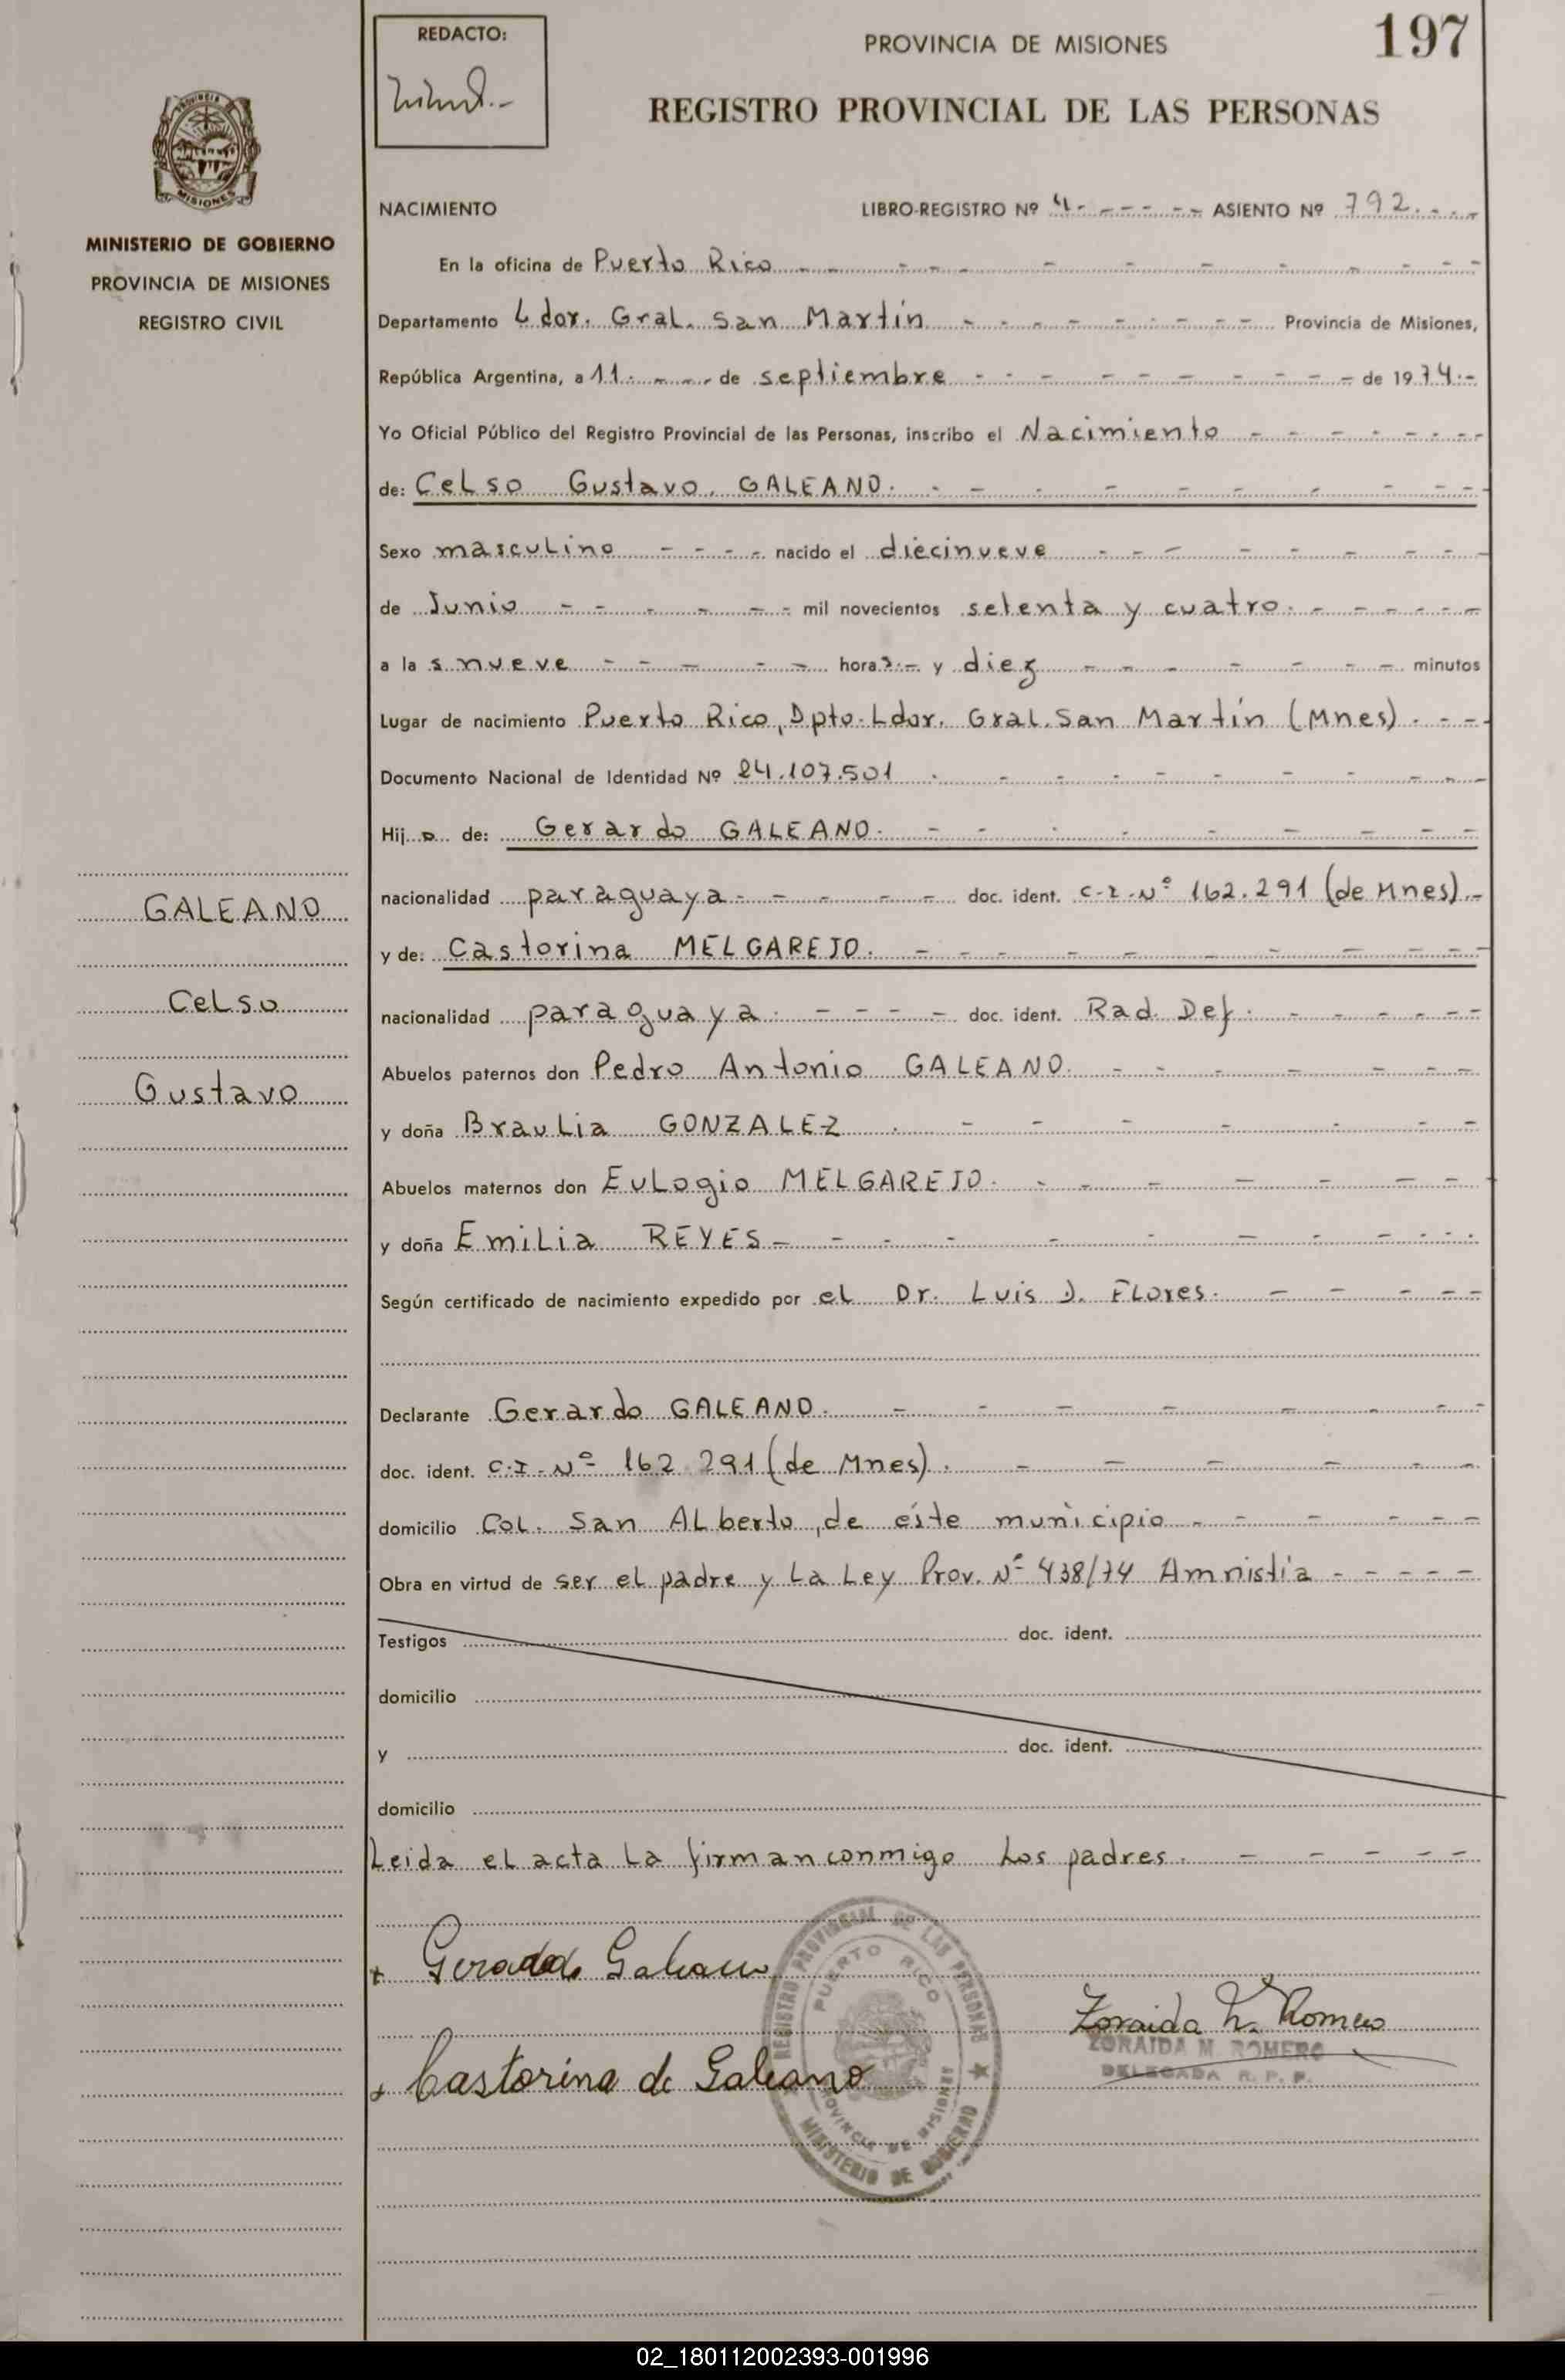 REDACTO:
PROVINCIA DE MISIONES
197
REGISTRO PROVINCIAL DE LAS PERSONAS
PROVINCIA
MISIONES
MINISTERIO DE GOBIERNO
PROVINCIA DE MISIONES
REGISTRO CIVIL
NACIMIENTO LIBRO-REGISTRO Nº 4 ASIENTO Nº 792
En la oficina de Puerto Rico
Departamento Ldor. Gral. San Martín Provincia de Misiones,
República Argentina, a 11 de septiembre de 1974
Yo Oficial Público del Registro Provincial de las Personas, inscribo el Nacimiento
de: Celso Gustavo GALEANO
Sexo masculino nacido el diecinueve
de Junio mil novecientos setenta y cuatro
a las nueve horas y diez minutos
Lugar de nacimiento Puerto Rico, Dpto. Ldor. Gral. San Martín (Mnes)
Documento Nacional de Identidad Nº 24.107.501
Hijo de: Gerardo GALEANO
nacionalidad paraguaya doc. ident. C.I. Nº 162.291 (de Mnes)
y de: Castorina MELGAREJO
nacionalidad paraguaya doc. ident. Rad. Def.
Abuelos paternos don Pedro Antonio GALEANO
y doña Braulia GONZALEZ
Abuelos maternos don Eulogio MELGAREJO
y doña Emilia REYES
Según certificado de nacimiento expedido por el Dr. Luis J. Flores
Declarante Gerardo GALEANO
doc. ident. C.I. Nº 162.291 (de Mnes)
domicilio Col. San Alberto, de éste municipio
Obra en virtud de ser el padre y La Ley Prov. Nº 438/74 Amnistía
Testigos doc. ident.
domicilio
y doc. ident.
domicilio
Leida el acta la firman conmigo Los padres.
GALEANO
Celso
Gustavo
Gerardo Galeano
Castorina de Galeano
REGISTRO PROVINCIAL DE LAS PERSONAS
PUERTO RICO
PROVINCIA DE MISIONES
MINISTERIO DE GOBIERNO
Zoraida M. Romero
ZORAIDA M. ROMERO
DELEGADA R. P. P.
02_180112002393-001996